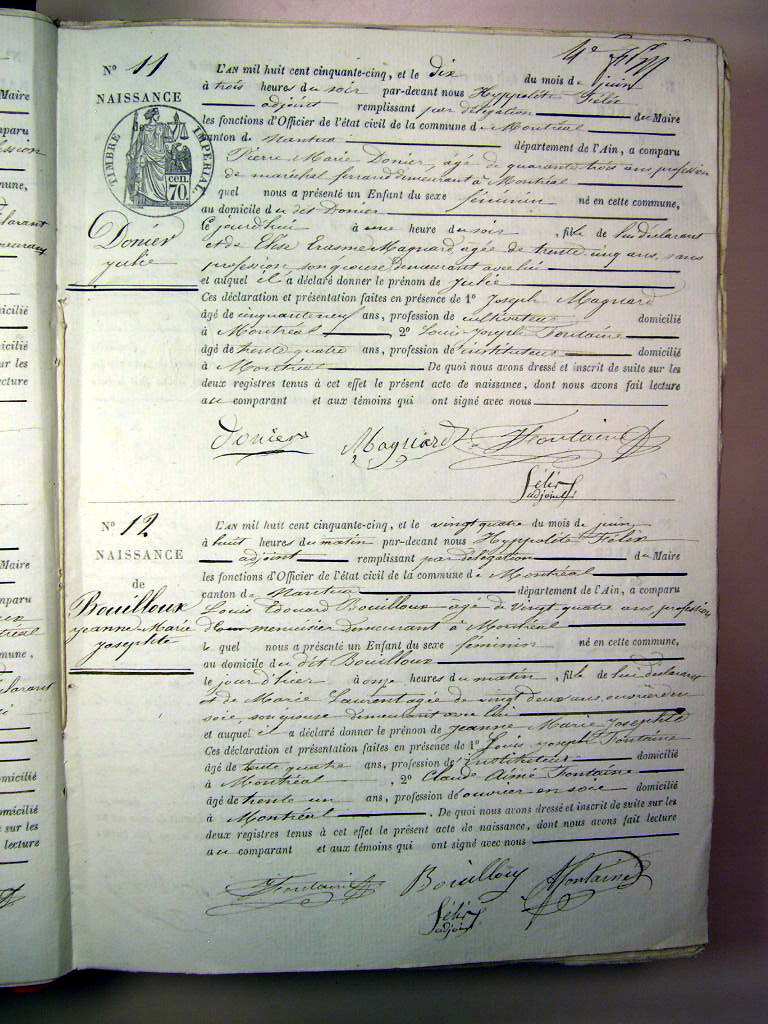 4e
N° 11
NAISSANCE
de
TIMBRE IMPÉRIAL
70 cen.
Donier
julie
L'AN mil huit cent cinquante-cinq, et le dix du mois de juin
à trois heures du soir par-devant nous Hyppolite Félix
adjoint remplissant par délégation du Maire
les fonctions d'Officier de l'état civil de la commune de Montréal
canton de Nantua département de l'Ain, a comparu
Pierre Marie Donier, agé de quarante trois ans profession
de maréchal ferrand demeurant à Montréal
quel nous a présenté un Enfant du sexe féminin né en cette commune,
au domicile du dit Donier
le jourd'hui à une heure du soir, fille de lui déclarant
et de Elise Erasme Magnard agée de trente cinq ans, sans
profession son épouse demeurant avec lui
et auquel il a déclaré donner le prénom de Julie
Ces déclaration et présentation faites en présence de 1° Joseph Magnard
âgé de cinquante neuf ans, profession de cultivateur domicilié
à Montréal, 2° Louis Joseph Fontaine
âgé de trente quatre ans, profession d'instituteur domicilié
à Montréal De quoi nous avons dressé et inscrit de suite sur les
deux registres tenus à cet effet le présent acte de naissance, dont nous avons fait lecture
au comparant et aux témoins qui ont signé avec nous
Donier Magnard Fontaine
Félix
adjoint
N° 12
NAISSANCE
de
Bouilloux
jeanne Marie
josephte
L'AN mil huit cent cinquante-cinq, et le vingt quatre du mois de juin
à huit heures du matin par-devant nous Hyppolite Félix
adjoint remplissant par délégation du Maire
les fonctions d'Officier de l'état civil de la commune de Montréal
canton de Nantua département de l'Ain, a comparu
Louis Edouard Bouilloux agé de vingt quatre ans, profession
de menuisier demeurant à Montréal
le quel nous a présenté un Enfant du sexe féminin né en cette commune,
au domicile du dit Bouilloux
le jour d'hier à onze heures du matin, fille de lui déclarant
et de Marie Laurent agée de vingt deux ans ouvrière en
soie, son épouse demeurant avec lui
et auquel il a déclaré donner le prénom de jeanne Marie Josephte
Ces déclaration et présentation faites en présence de 1° Louis Joseph Fontaine
âgé de trente quatre ans, profession d'instituteur domicilié
à Montréal, 2° Claude Aimé Fontaine
âgé de trente un ans, profession d'ouvrier en soie domicilié
à Montréal. De quoi nous avons dressé et inscrit de suite sur les
deux registres tenus à cet effet le présent acte de naissance, dont nous avons fait lecture
au comparant et aux témoins qui ont signé avec nous
Fontaine Bouilloux Fontaine
Félix
adjoint